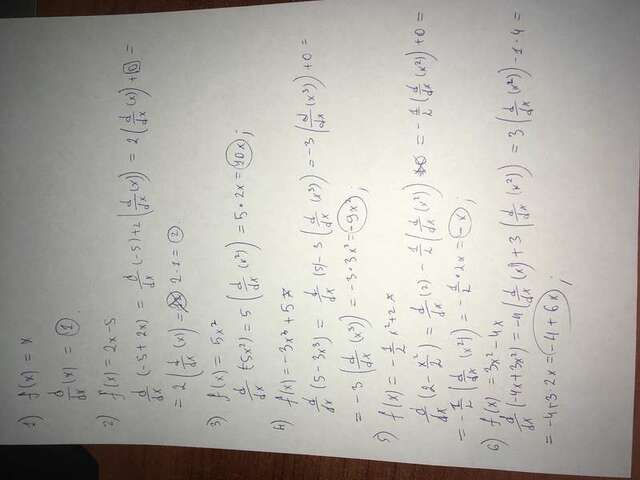 1) f(x) = x
d/dx (x) = 1
2) f(x) = 2x-5
d/dx (-5 + 2x) = d/dx (-5) + 2 (d/dx (x)) = 2 (d/dx (x)) + 0 =
= 2 (d/dx (x)) = 2·1 = 2
3) f(x) = 5x²
d/dx (5x²) = 5 (d/dx (x²)) = 5·2x = 10x;
4) f(x) = -3x³ + 5
d/dx (5 - 3x³) = d/dx (5) - 3 (d/dx (x³)) = -3 (d/dx (x³)) + 0 =
= -3 (d/dx (x³)) = -3·3x² = -9x²;
5) f(x) = -1/2 x² + 2
d/dx (2 - x²/2) = d/dx (2) - 1/2 (d/dx (x²)) = -1/2 (d/dx (x²)) + 0 =
= -1/2 (d/dx (x²)) = -1/2 · 2x = -x;
6) f(x) = 3x² - 4x
d/dx (-4x + 3x²) = -4 (d/dx (x)) + 3 (d/dx (x²)) = 3 (d/dx (x²)) - 1·4 =
= -4 + 3·2x = -4 + 6x;